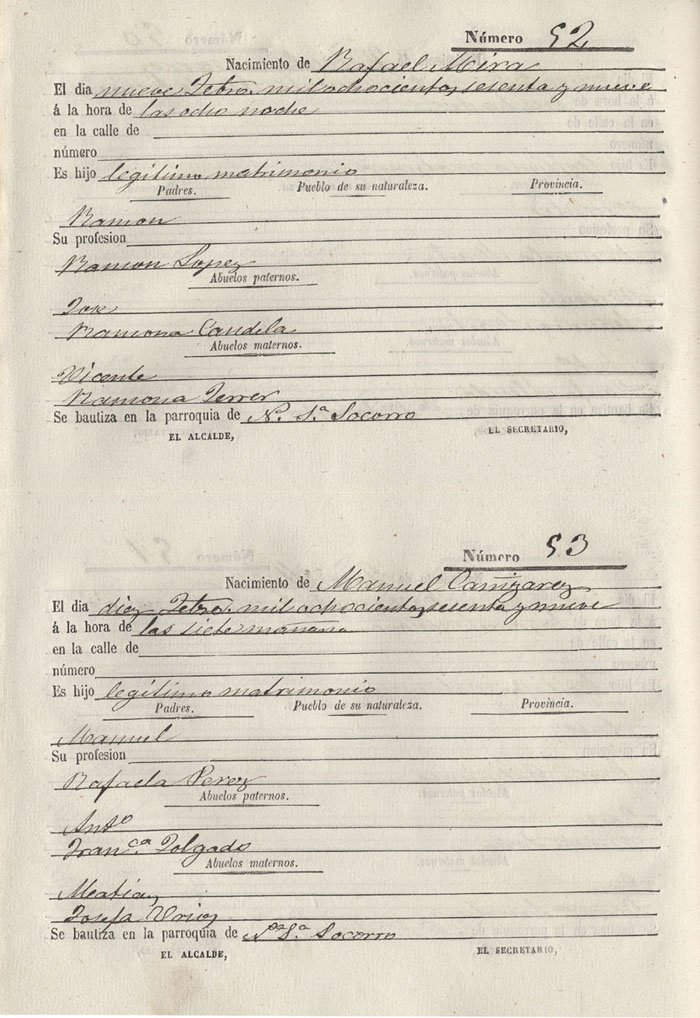 Número 52
Nacimiento de Rafael Mira
El dia nueve Febro. mil ochocientos sesenta y nueve
á la hora de las ocho noche
en la calle de
número
Es hijo legitimo matrimonio
Padres. Pueblo de su naturaleza. Provincia.
Ramon
Su profesion
Ramon Lopez
Abuelos paternos.
Jose
Ramona Candela
Abuelos maternos.
Vicente
Ramona Ferrer
Se bautiza en la parroquia de N.ª S.ª Socorro
EL ALCALDE, EL SECRETARIO,
Número 53
Nacimiento de Manuel Cañizarez
El dia diez Febro. mil ochocientos sesenta y nueve
á la hora de las siete mañana
en la calle de
número
Es hijo legitimo matrimonio
Padres. Pueblo de su naturaleza. Provincia.
Manuel
Su profesion
Rafaela Perez
Abuelos paternos.
Antº
Franca Folgado
Abuelos maternos.
Matias
Josefa
Se bautiza en la parroquia de Nª Sª Socorro
EL ALCALDE, EL SECRETARIO,